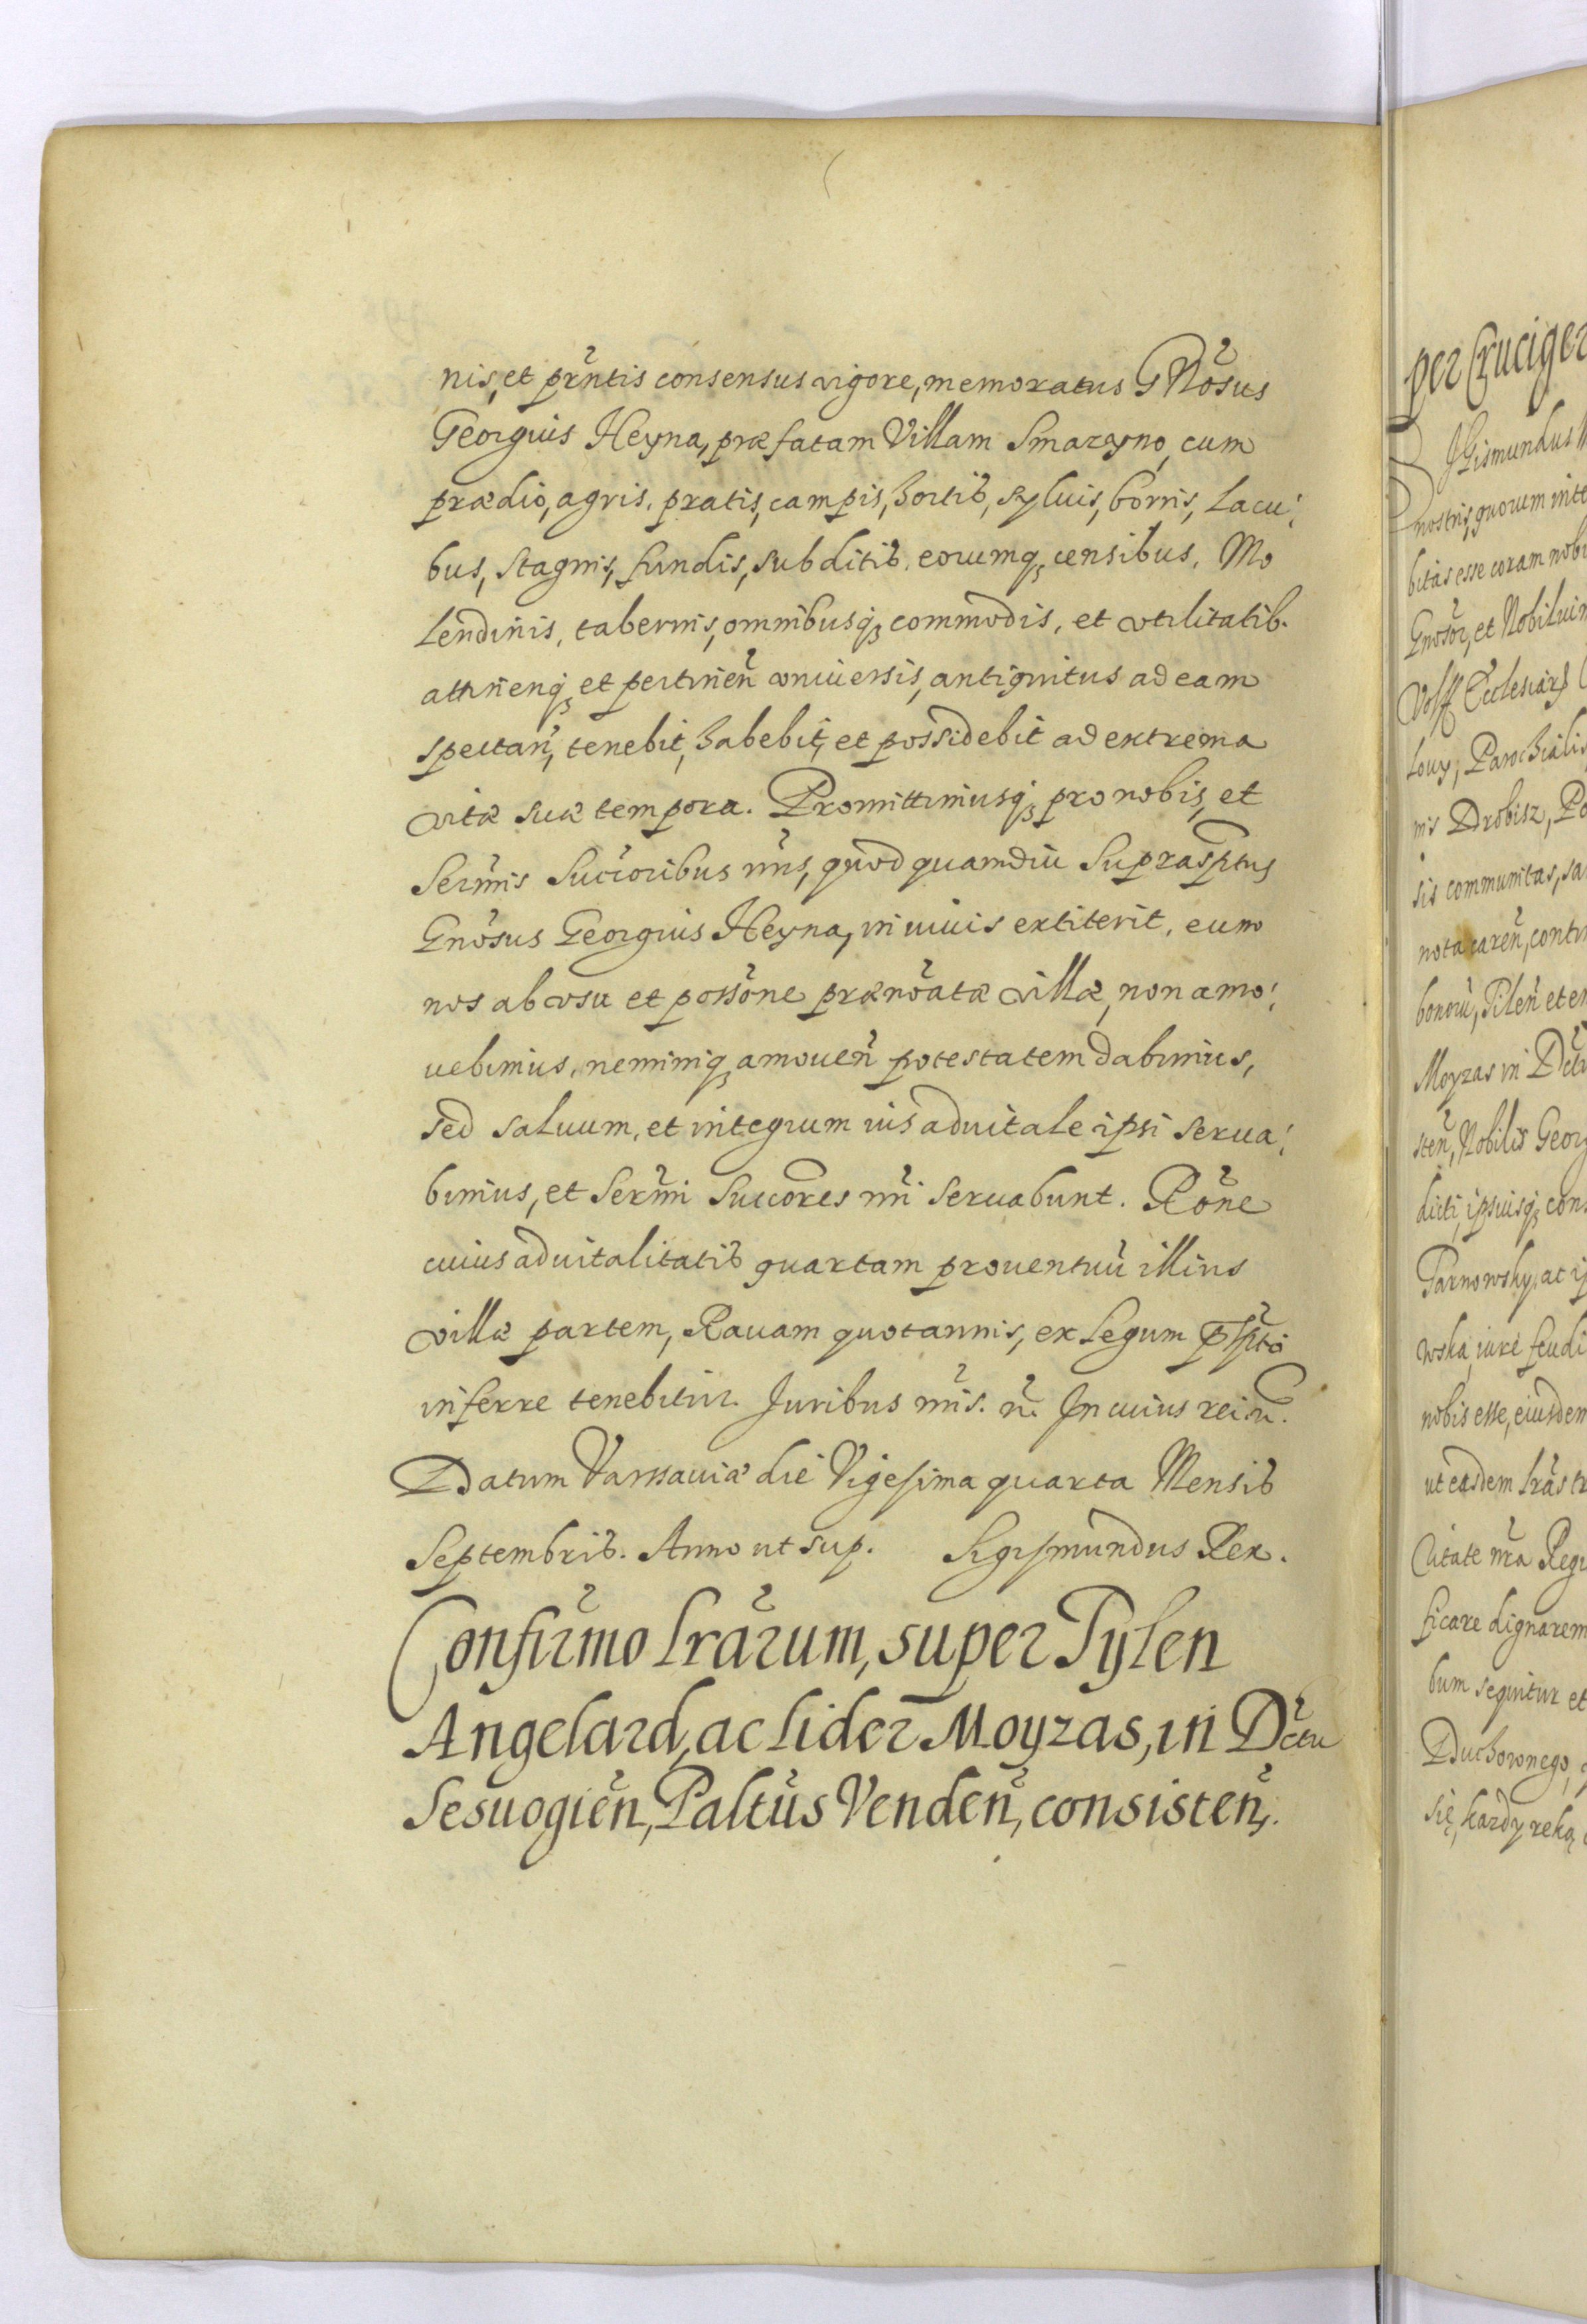 nis, et prñtis consensus vigore, memoratus GÑosus
Georgius Heyna, præfatam Villam Smarzyno, cum
prædio, agris, pratis, campis, hortis, syluis, borris, Lacu:
bus, stagnis, fundis, subditis, eorumq; censibus, Mo
lendinis, tabernis, omnibusq; commodis, et vtilitatib.
attineñq; et pertineñ vniuersis, antiquitus ad eam
spectañ, tenebit, habebit, et possidebit ad extrema
vitæ suæ tempora. Promittimusq; pro nobis, et
Serm̃is Succ̃oribus ñris, quod quamdiu Suprasc̃ptus
Gnõsus Georgius Heyna, in viuis extiterit, eum
nos ab vsu et possõne prænõatæ villæ, non amo:
uebimus, neminiq; amoueñ potestatem dabimus,
sed saluum, et integrum ius aduitale ipsi serua:
bimus, et Serm̃i Succõres ñri seruabunt. Rõne
cuius aduitalitatis quartam prouentuũ illius
villæ partem, Rauam quotannis, ex Legum p̃scpto
inferre tenebitur. Juribus ñris. ñ. In cuius rei ñ.
Datum Varssauiæ die Vigesima quarta Mensis
Septembris. Anno ut sup. Sigismundus Rex.
Confir̃mo Lrãrum, super Tylen
Angelard, ac Lider Moyzas, in Dc̃tu
Sesuogieñ, Paltũs Vendeñ, consisteñ.
per Cruciger
nostris, quorum
bitas esse coram nobi
Gnõsor, et Nobilium
Volff Ecclesiarũ
Louy, Parochialis
nis Drobisz, Po
sis communitas, sa
nota careñ, contin
bonorũ, Tileñ et
Moyzas in Dc̃tu
steñ, Nobilis Georg
dicti, ipsiusq; cons
Tarnowsky, ac ip
wska, iure feudi
nobis esse, eiusdem
ut easdem Lrãs
ñra Regi
ficare dignarem
bum sequitur et
Duchownego,
się, kazdy reką,